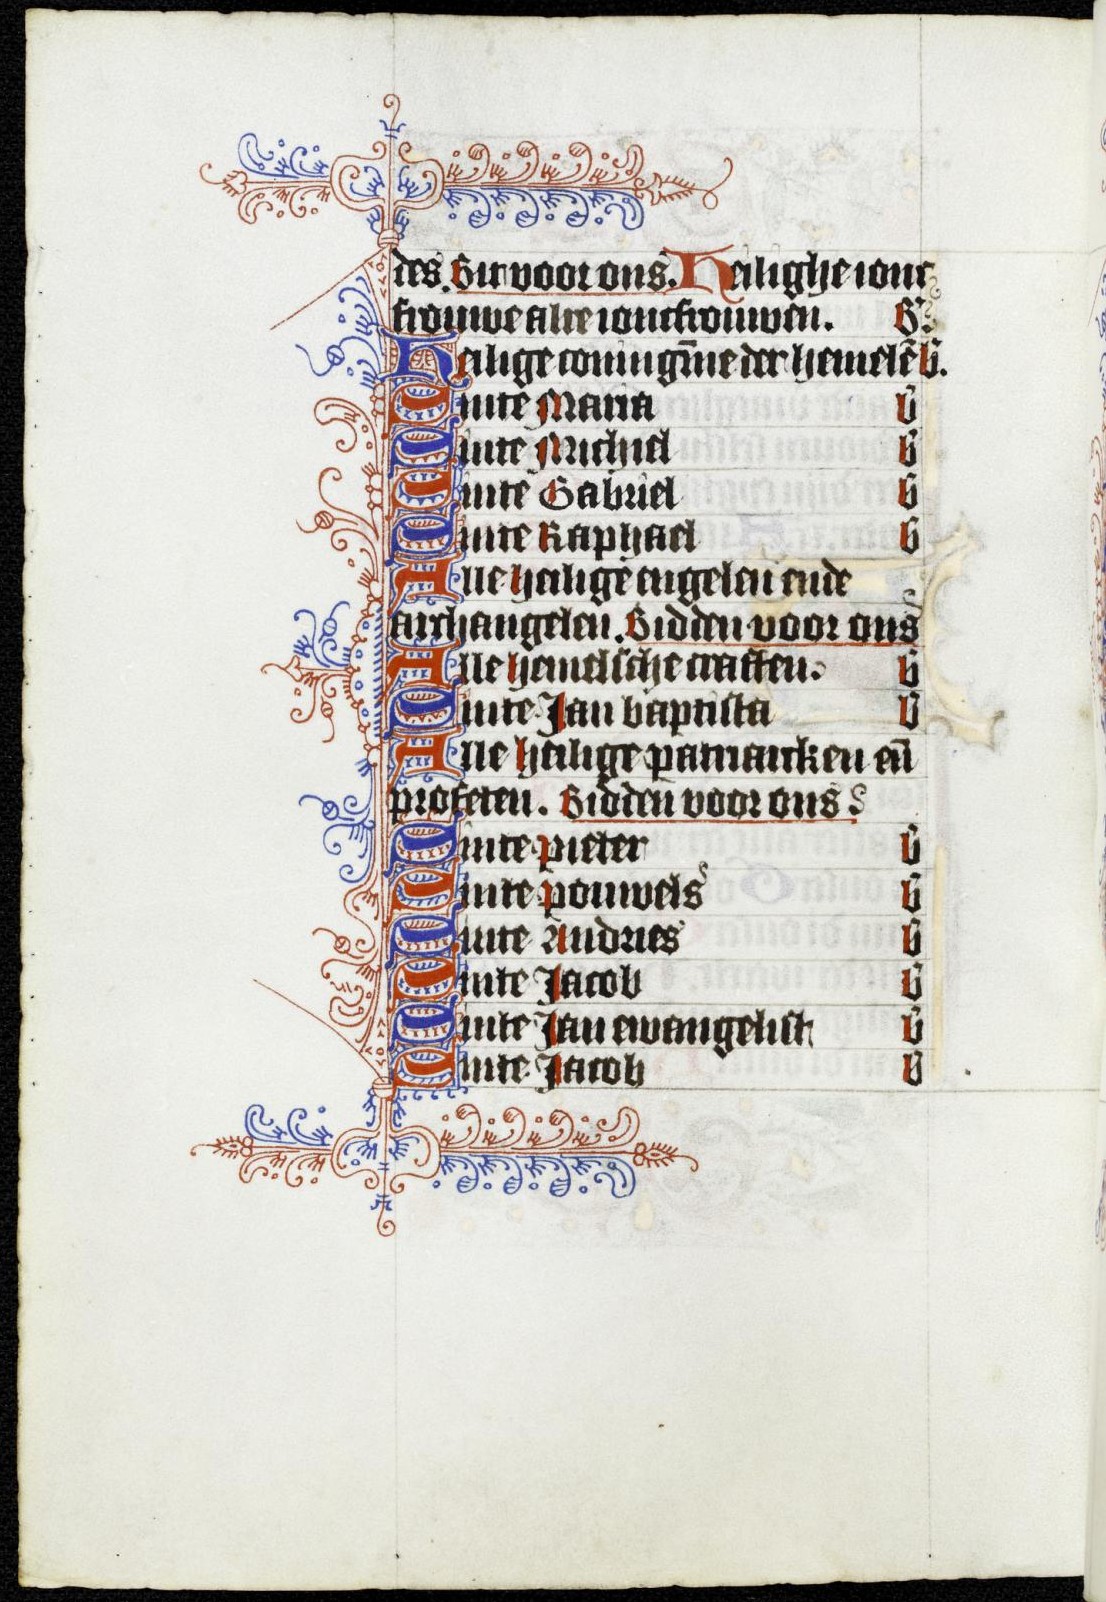 des. Bit voor ons. Heilighe ionc
frouwe alre ioncfrouwen. B
Heilige coninginne der hemelē B.
Sinte Maria B
Sinte Michiel B
Sinte Gabriel B
Sinte Raphael B
Alle heilige engelen ende
archangelen. Bidden voor ons
Alle hemelsche craften. B
Sinte Jan baptista B
Alle heilige patriarcken eñ
profeten. Bidden voor ons
Sinte pieter B
Sinte pouwels B
Sinte Andries B
Sinte Jacob B
Sinte Jan ewangelist B
Sinte Jacob B